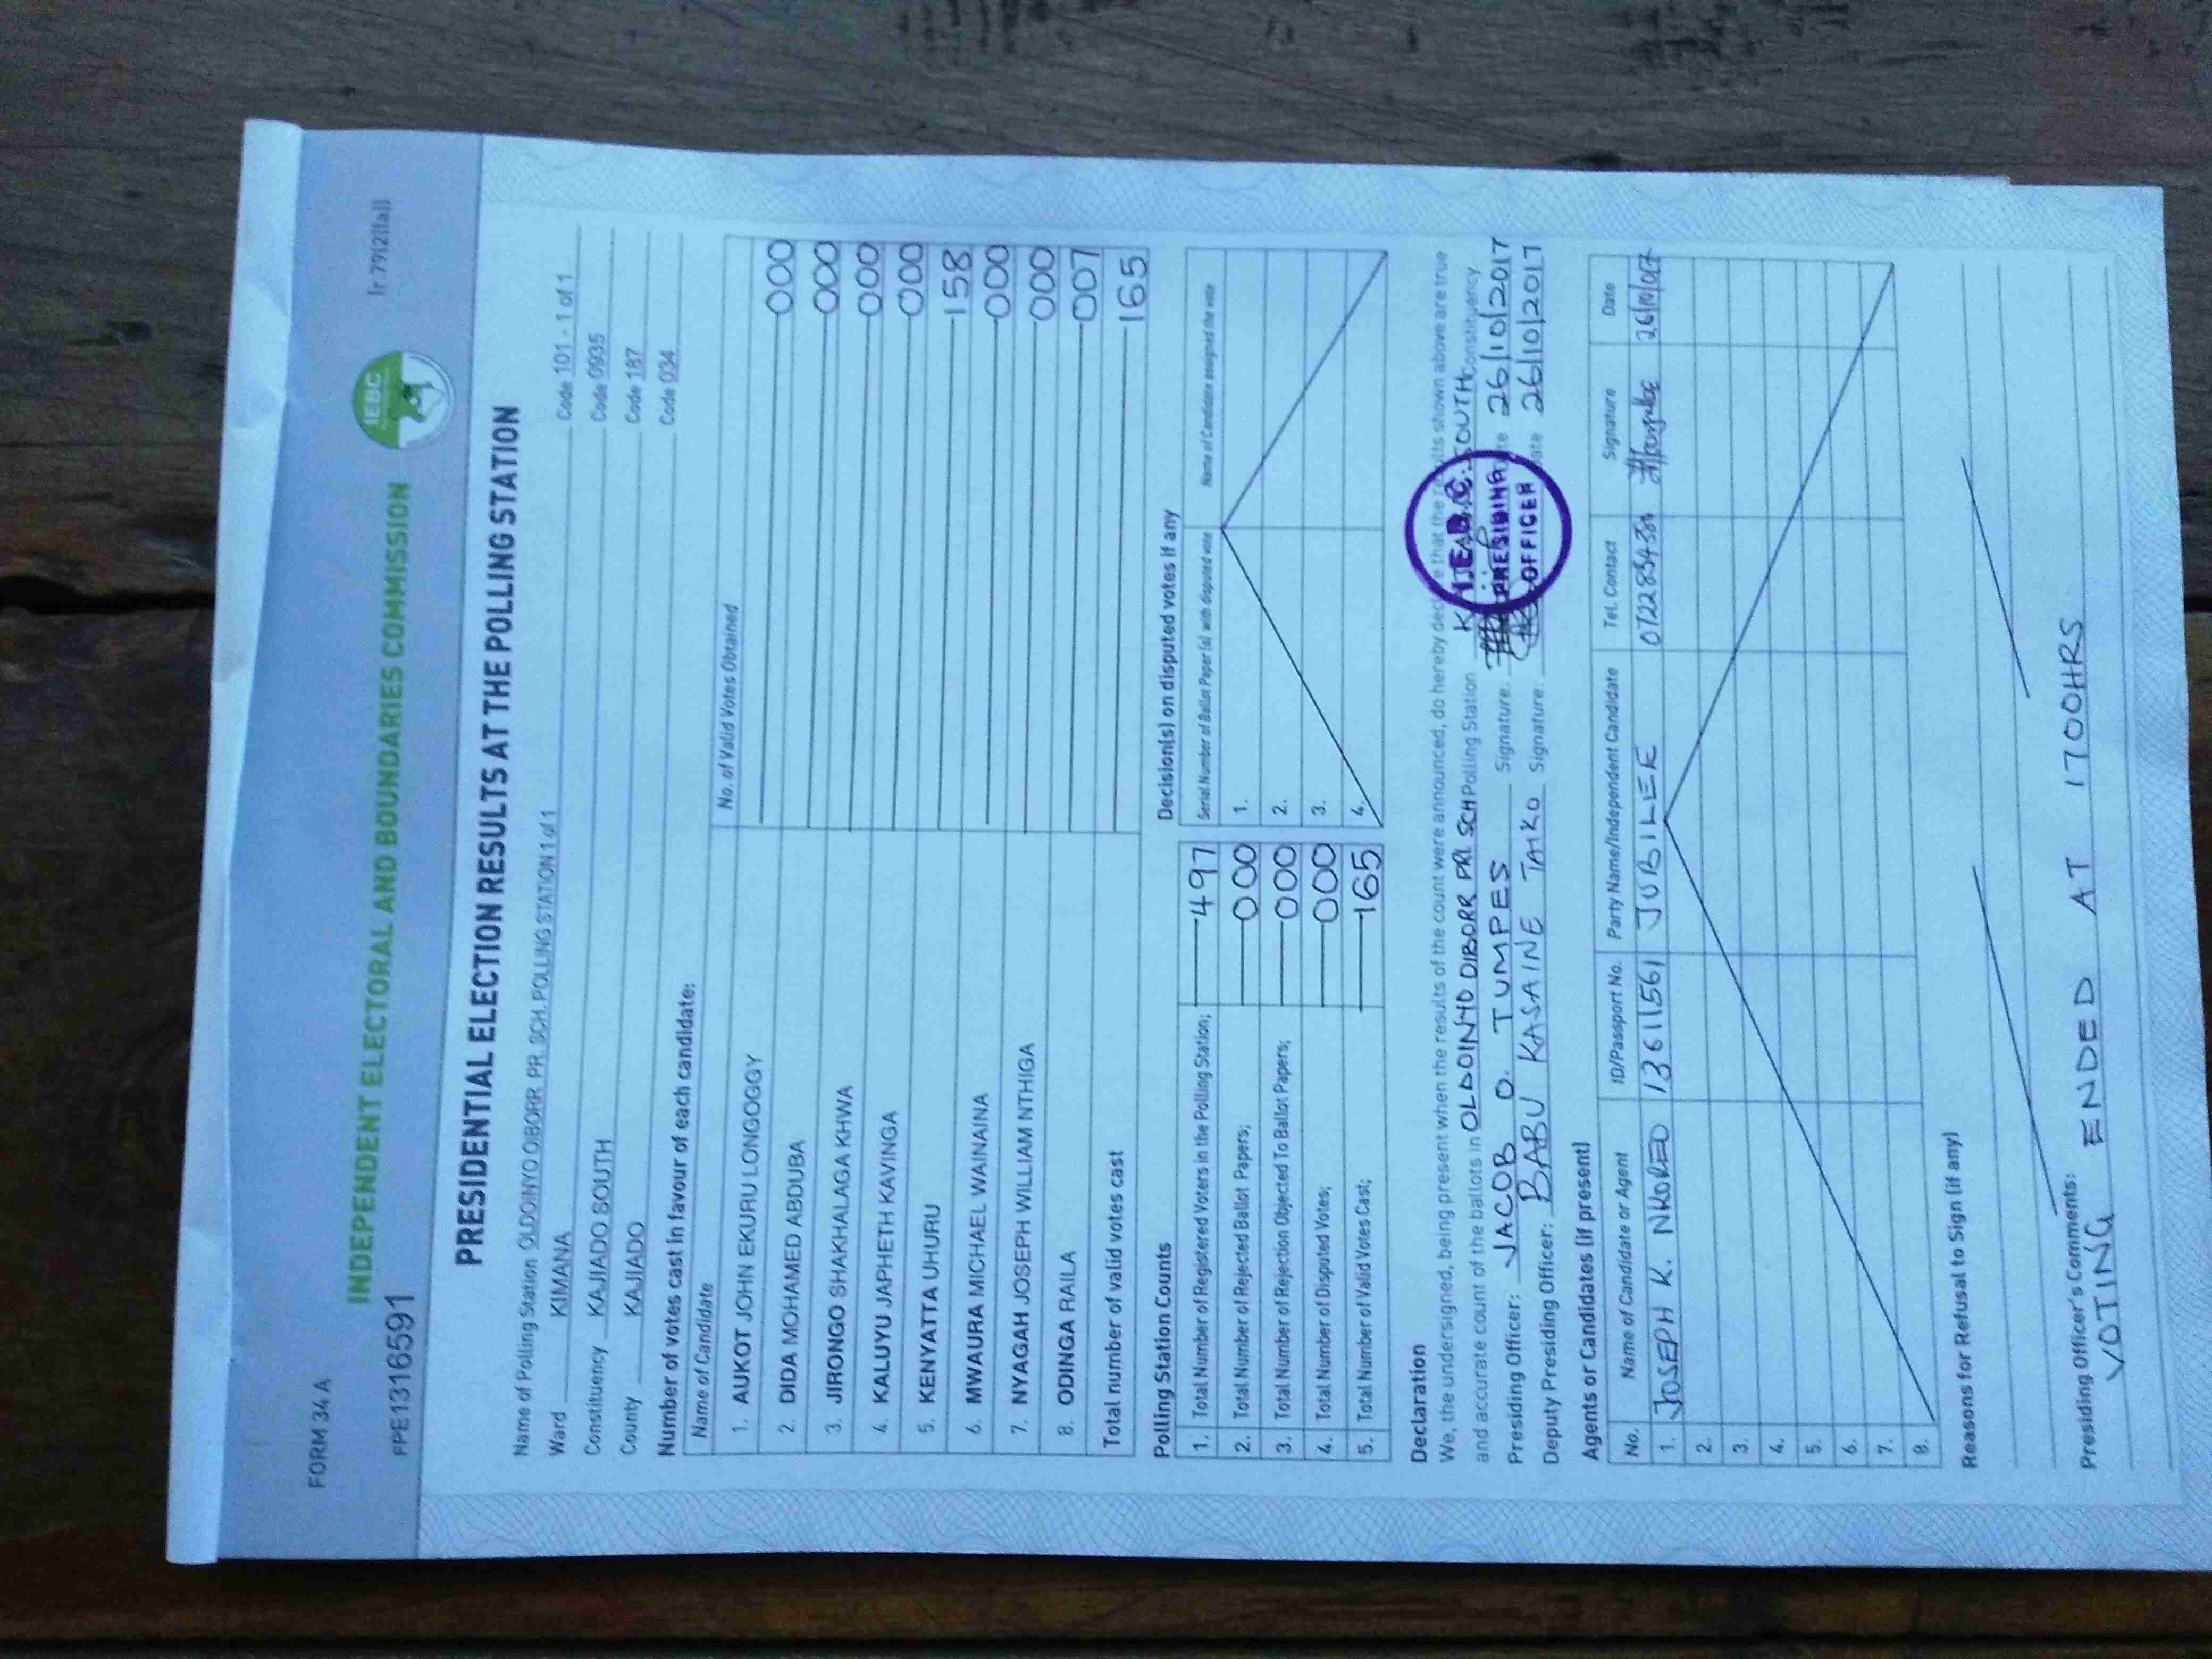 FORM 34 A
INDEPENDENT ELECTORAL AND BOUNDARIES COMMISSION
IEBC
(r 79(2)(a))
FPE1316591
PRESIDENTIAL ELECTION RESULTS AT THE POLLING STATION
Name of Polling Station OLDOINYO OIBORR PR. SCH. POLLING STATION 1 of 1 Code 101 - 1 of 1
Ward KIMANA Code 0935
Constituency KAJIADO SOUTH Code 187
County KAJIADO Code 034
Number of votes cast in favour of each candidate:
Name of Candidate No. of Valid Votes Obtained
1. AUKOT JOHN EKURU LONGOGGY 000
2. DIDA MOHAMED ABDUBA 000
3. JIRONGO SHAKHALAGA KHWA 000
4. KALUYU JAPHETH KAVINGA 000
5. KENYATTA UHURU 158
6. MWAURA MICHAEL WAINAINA 000
7. NYAGAH JOSEPH WILLIAM NTHIGA 000
8. ODINGA RAILA 007
Total number of valid votes cast 165
Polling Station Counts
1. Total Number of Registered Voters in the Polling Station; 497
2. Total Number of Rejected Ballot Papers; 000
3. Total Number of Rejection Objected To Ballot Papers; 000
4. Total Number of Disputed Votes; 000
5. Total Number of Valid Votes Cast; 165
Decision(s) on disputed votes if any
Serial Number of Ballot Paper (s) with disputed vote Name of Candidate assigned the vote
1.
2.
3.
4.
Declaration
We, the undersigned, being present when the results of the count were announced, do hereby declare that the results shown above are true
and accurate count of the ballots in OLDOINYO OIBORR PRI. SCH Polling Station SOUTH Constituency
Presiding Officer: JACOB O. TUMPES Signature: 26/10/2017
Deputy Presiding Officer: BABU KASAINE TAIKO Signature: Date 26/10/2017
I.E.B.C.
PRESIDING
OFFICER
Agents or Candidates (if present)
No. Name of Candidate or Agent ID/Passport No. Party Name/Independent Candidate Tel. Contact Signature Date
1. JOSEPH K. NKOREO 13611561 JUBILEE
2.
3.
4.
5.
6.
7.
8.
Reasons for Refusal to Sign (if any)
Presiding Officer's Comments:
VOTING ENDED AT 1700HRS